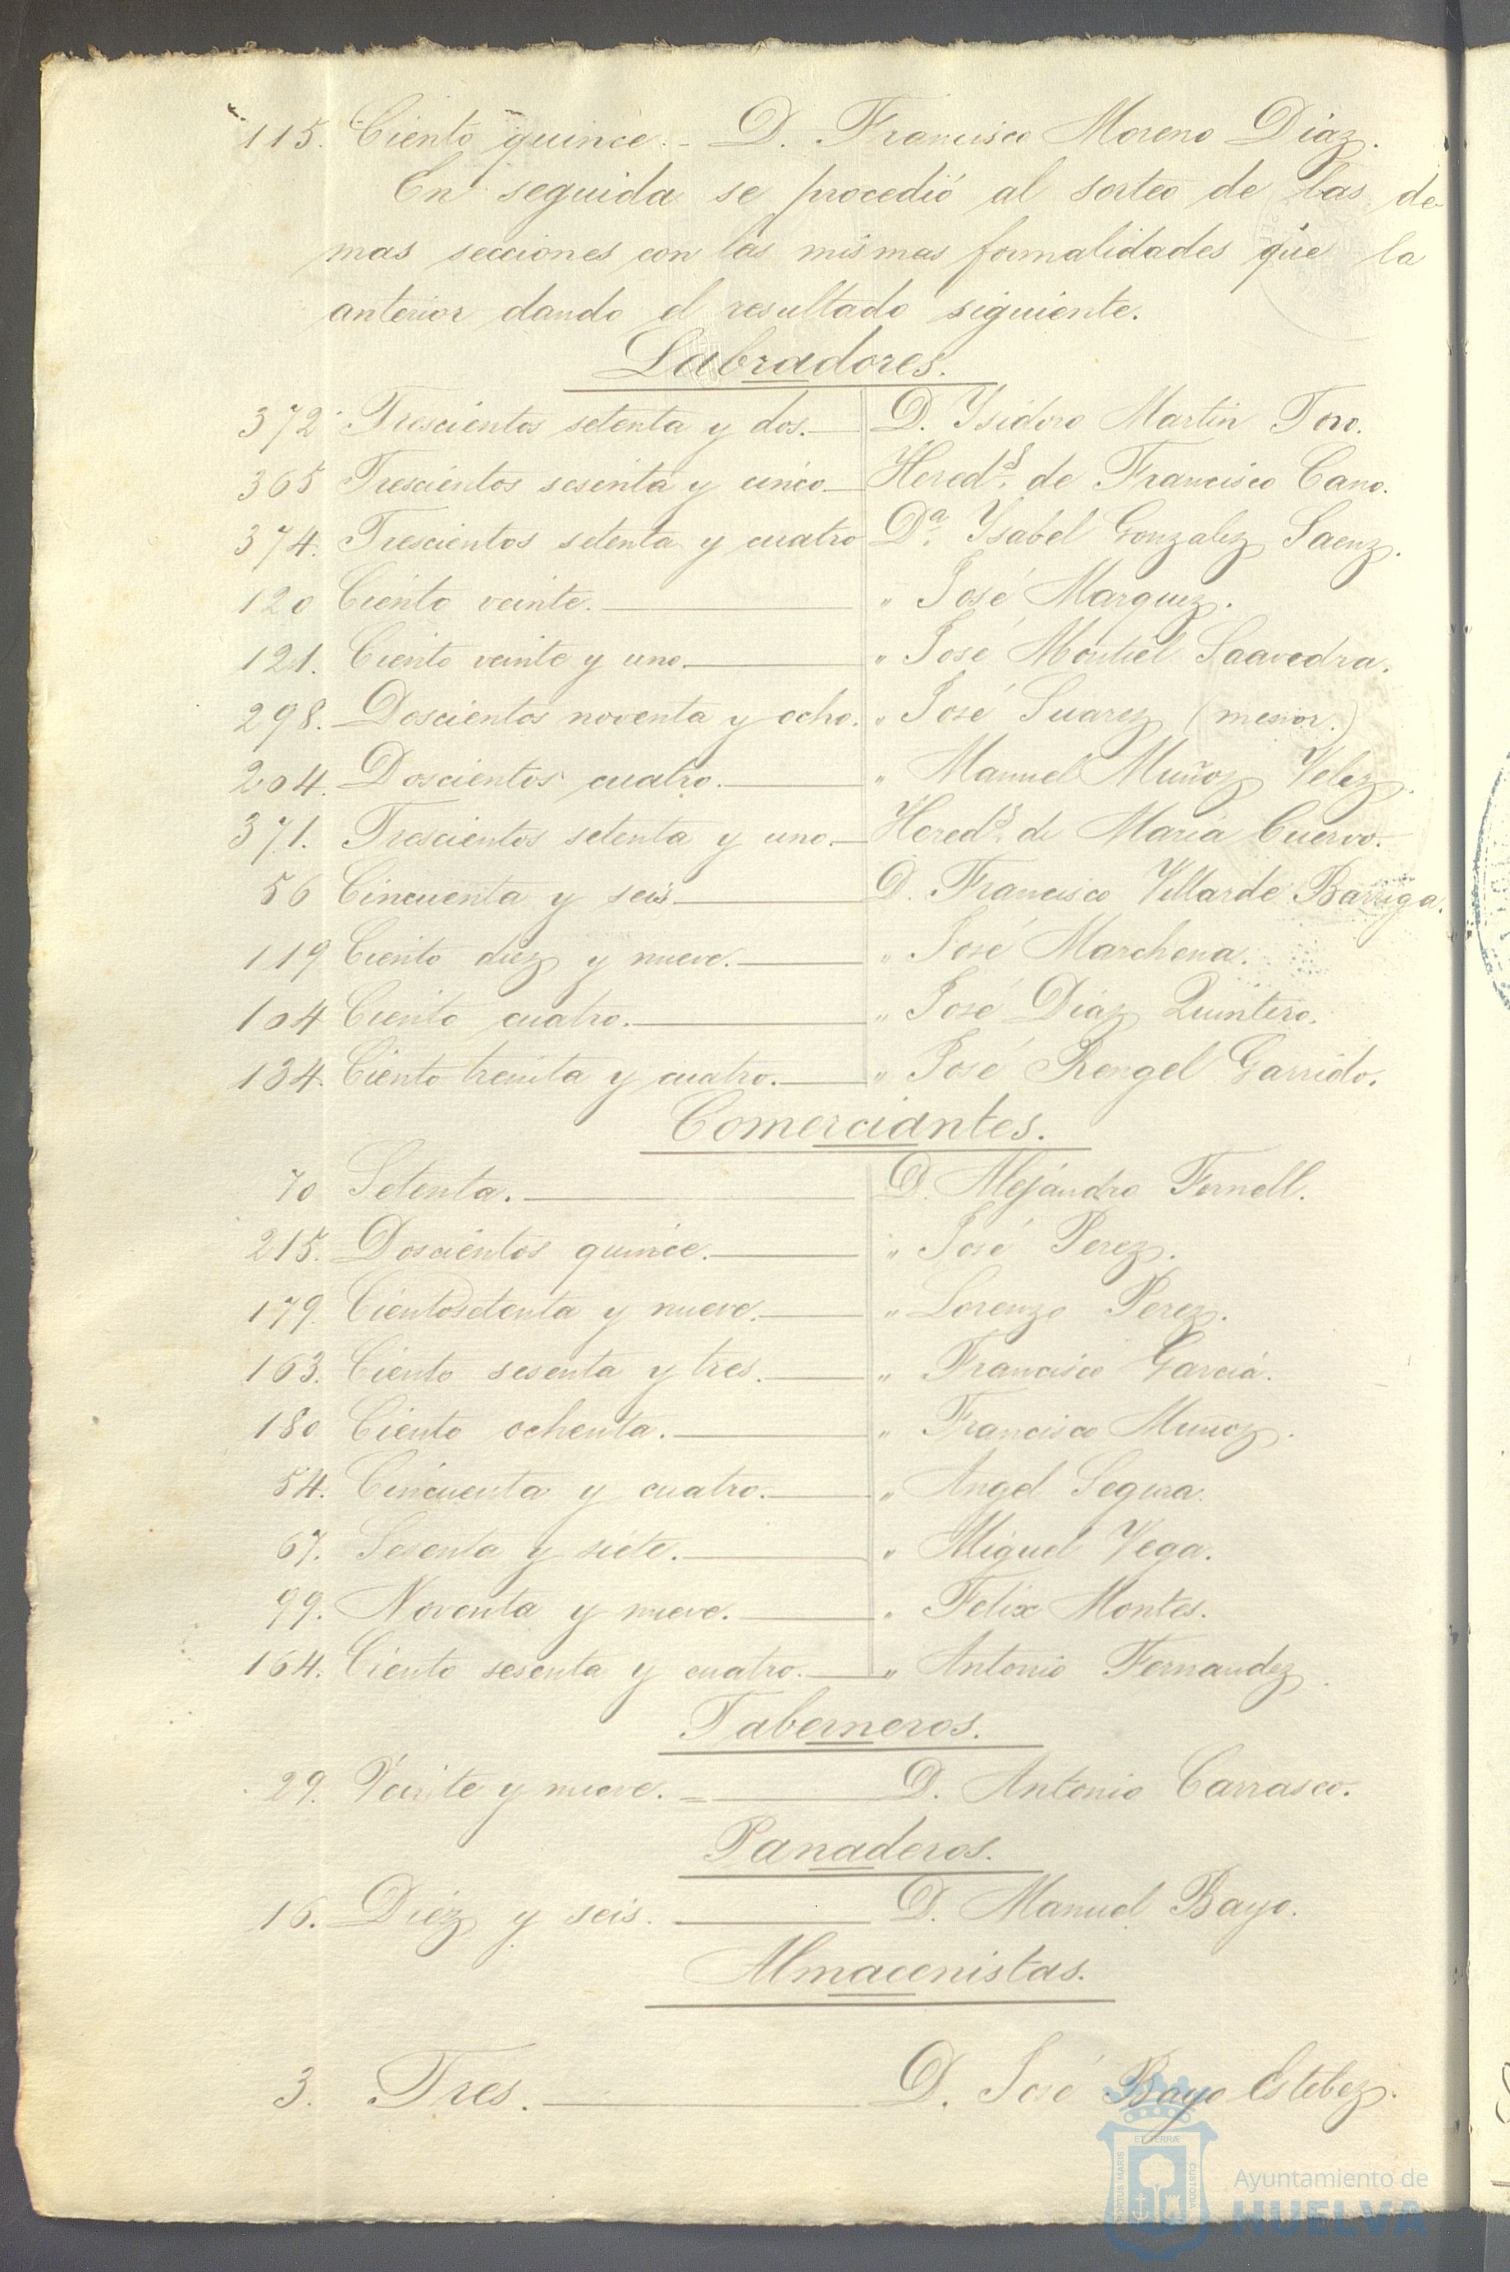 115. Ciento quince. - D. Francisco Moreno Diaz.
En seguida se procedió al sorteo de las de-
mas secciones con las mismas formalidades que la
anterior dando el resultado siguiente.
Labradores.
372 Trescientos setenta y dos. D. Ysidoro Martin Toro.
365 Trescientos sesenta y cinco Hered.s de Francisco Cano.
374. Trescientos setenta y cuatro D.a Ysabel Gonzalez Saenz.
120 Ciento veinte. " José Marquez.
121. Ciento veinte y uno " José Montiel Saavedra.
298. Doscientos noventa y ocho. " José Suarez (menor.)
204. Doscientos cuatro. " Manuel Muñoz Velez.
371. Trescientos setenta y uno. Hered.s de Maria Cuervo.
56 Cincuenta y seis D. Francisco Villarde Barriga.
119 Ciento diez y nueve. " José Marchena.
104 Ciento cuatro. " José Diaz Quintero.
134. Ciento treinta y cuatro. " José Rengel Garrido.
Comerciantes.
70 Setenta. D. Alejandro Fornell.
215. Doscientos quince. " José Perez.
179. Ciento setenta y nueve. " Lorenzo Perez.
163. Ciento sesenta y tres. " Francisco Garcia.
180 Ciento ochenta. " Francisco Munoz.
54. Cincuenta y cuatro. " Angel Segura.
67. Sesenta y siete. " Miguel Vega.
99. Noventa y nueve. " Felix Montes.
164. Ciento sesenta y cuatro. " Antonio Fernandez.
Taberneros.
29. Veinte y nueve. = D. Antonio Carrasco.
Panaderos.
16. Diez y seis. D. Manuel Bayo.
Almacenistas.
3. Tres. D. José Bayo Estebez.
PORTUS MARIS
ET TERRÆ
CUSTODIA
Ayuntamiento de
HUELVA